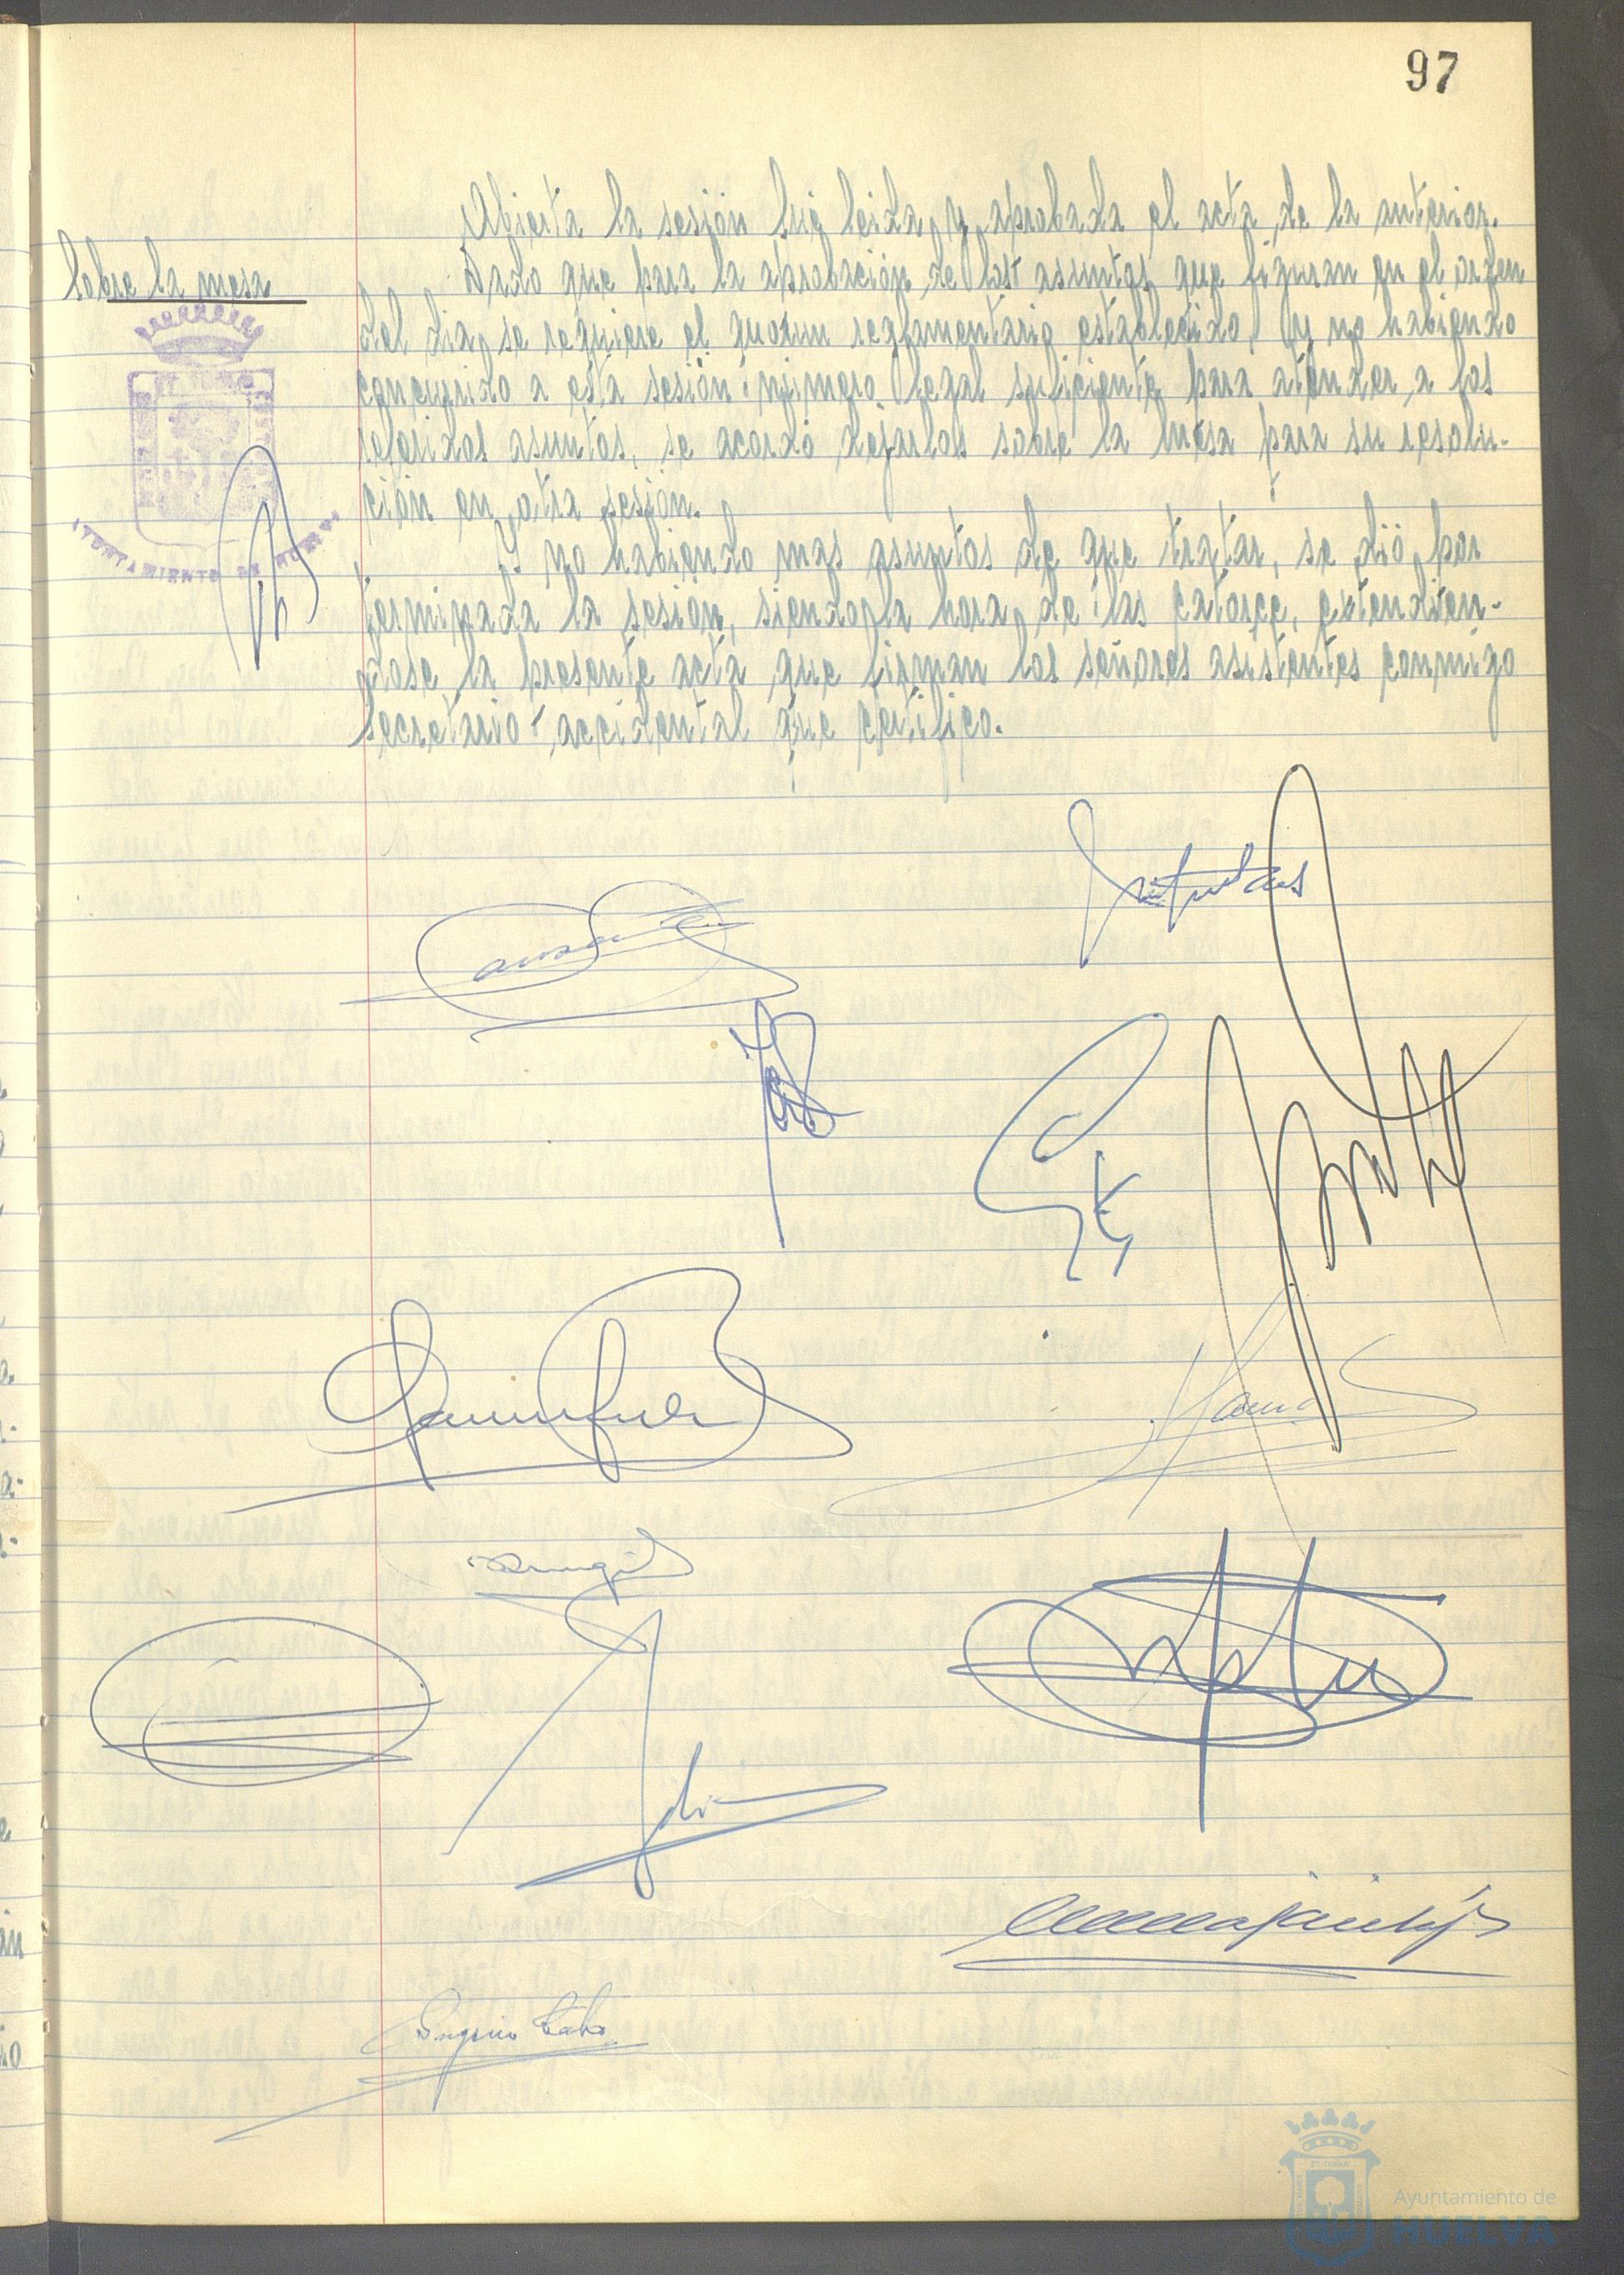 97
Abierta la sesión fué leida y aprobada el acta de la anterior.
Sobre la mesa
Dado que para la aprobación de los asuntos que figuran en el orden
del dia, se requiere el quorum reglamentario establecido, y no habiendo
concurrido a esta sesión número legal suficiente para atender a los
referidos asuntos, se acordó dejarlos sobre la mesa para su resolu-
ción en otra sesión.
Y no habiendo mas asuntos de que tratar, se dió por
terminada la sesión, siendo la hora de las catorce, extendien-
dose la presente acta que firman los señores asistentes conmigo
Secretario accidental que certifico.
AYUNTAMIENTO DE HUELVA
Eugenio
Ayuntamiento de
HUELVA